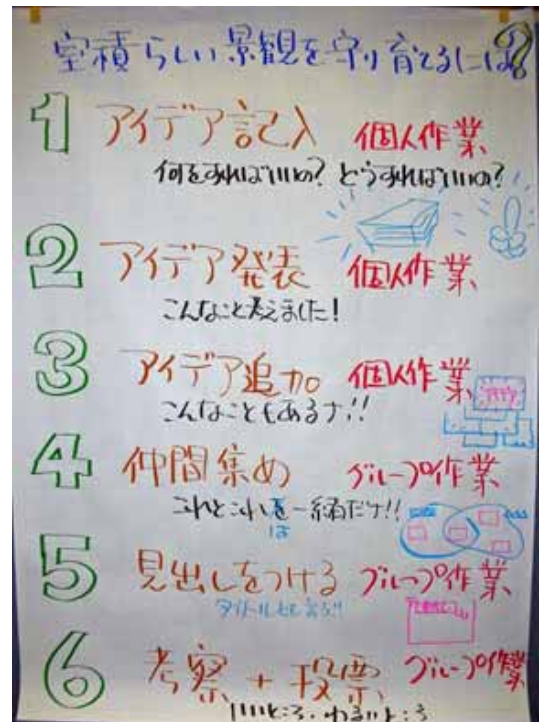 室積らしい景観を守り育てるには?
1 アイデア記入 個人作業
何をすればいいの? どうすればいいの?
2 アイデア発表 個人作業
こんなこと考えました!
3 アイデア追加 個人作業
こんなこともあるナ!!
4 仲間集め グループ作業
これとこれは一緒だナ!!
5 見出しをつける グループ作業
6 考察+投票 グループ作業
いいところ・わるいところ